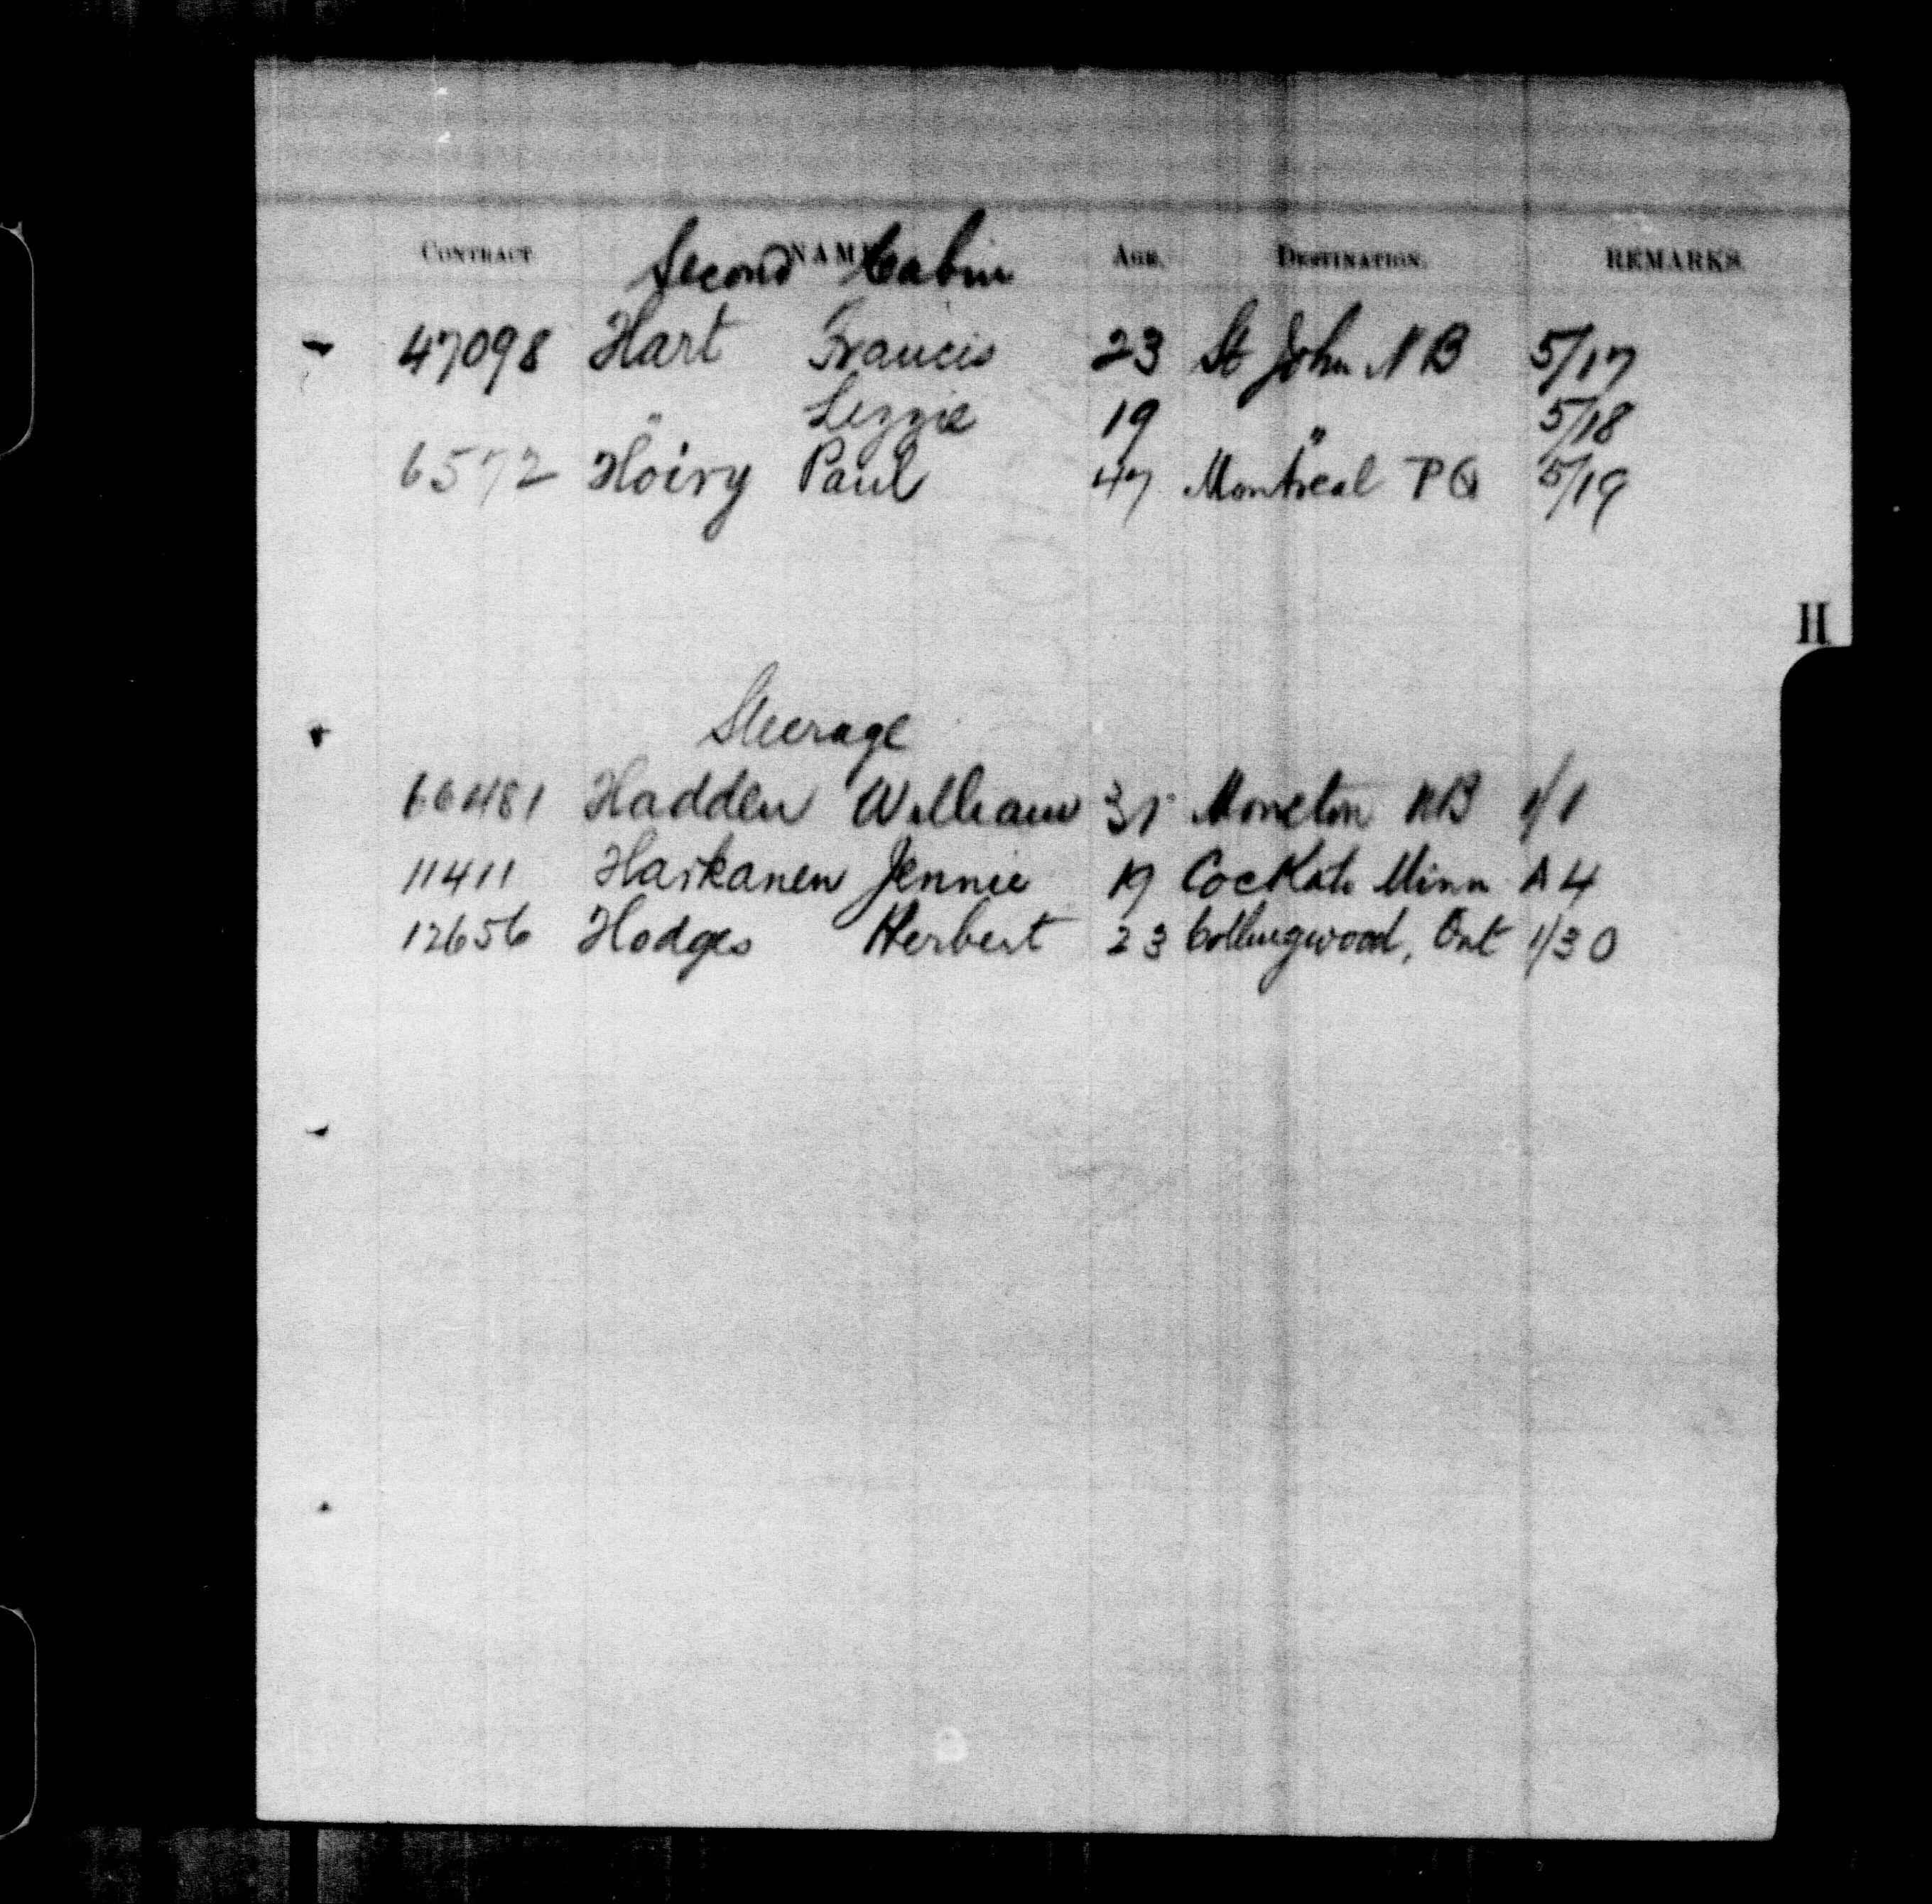 CONTRACT NAME AGE. DESTINATION. REMARKS.
Second Cabin
47098 Hart Francis 23 St John N B 5/17
" Lizzie 19 " 5/18
6572 Hoiry Paul 47 Montreal P Q 5/19
H
Steerage
66481 Hadden William 31 Moncton NB 1/1
11411 Haikanen Jennie 19 Cockato Minn A 4
12656 Hodges Herbert 23 Collingwood, Ont 1/30